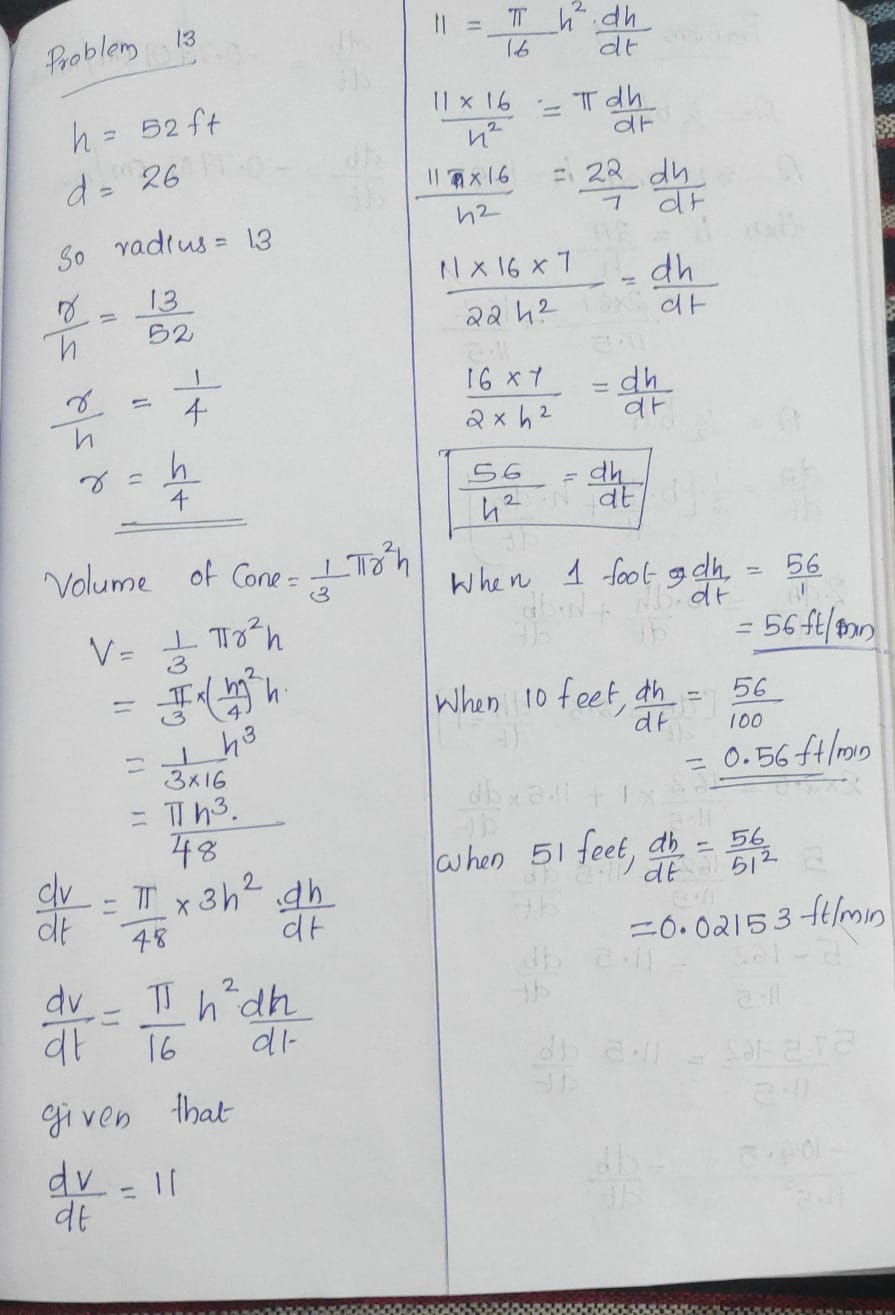 Problem 13
h = 52 ft
d = 26
So radius = 13
r/h = 13/52
r/h = 1/4
r = h/4
Volume of Cone = 1/3 πr²h
V = 1/3 πr²h
= π/3 × (h/4)² h.
= 1/(3×16) h³
= πh³./48
dv/dt = π/48 × 3h² . dh/dt
dv/dt = π/16 h² dh/dt
given that
dv/dt = 11
11 = π/16 h² . dh/dt
11 × 16/h² = π dh/dt
11 × 16/h² = 22/7 dh/dt
11 × 16 × 7/22 h² = dh/dt
16 × 7/2 × h² = dh/dt
56/h² = dh/dt
When 1 foot, dh/dt = 56/1
= 56 ft/min
When 10 feet, dh/dt = 56/100
= 0.56 ft/min
When 51 feet, dh/dt = 56/51²
= 0.02153 ft/min